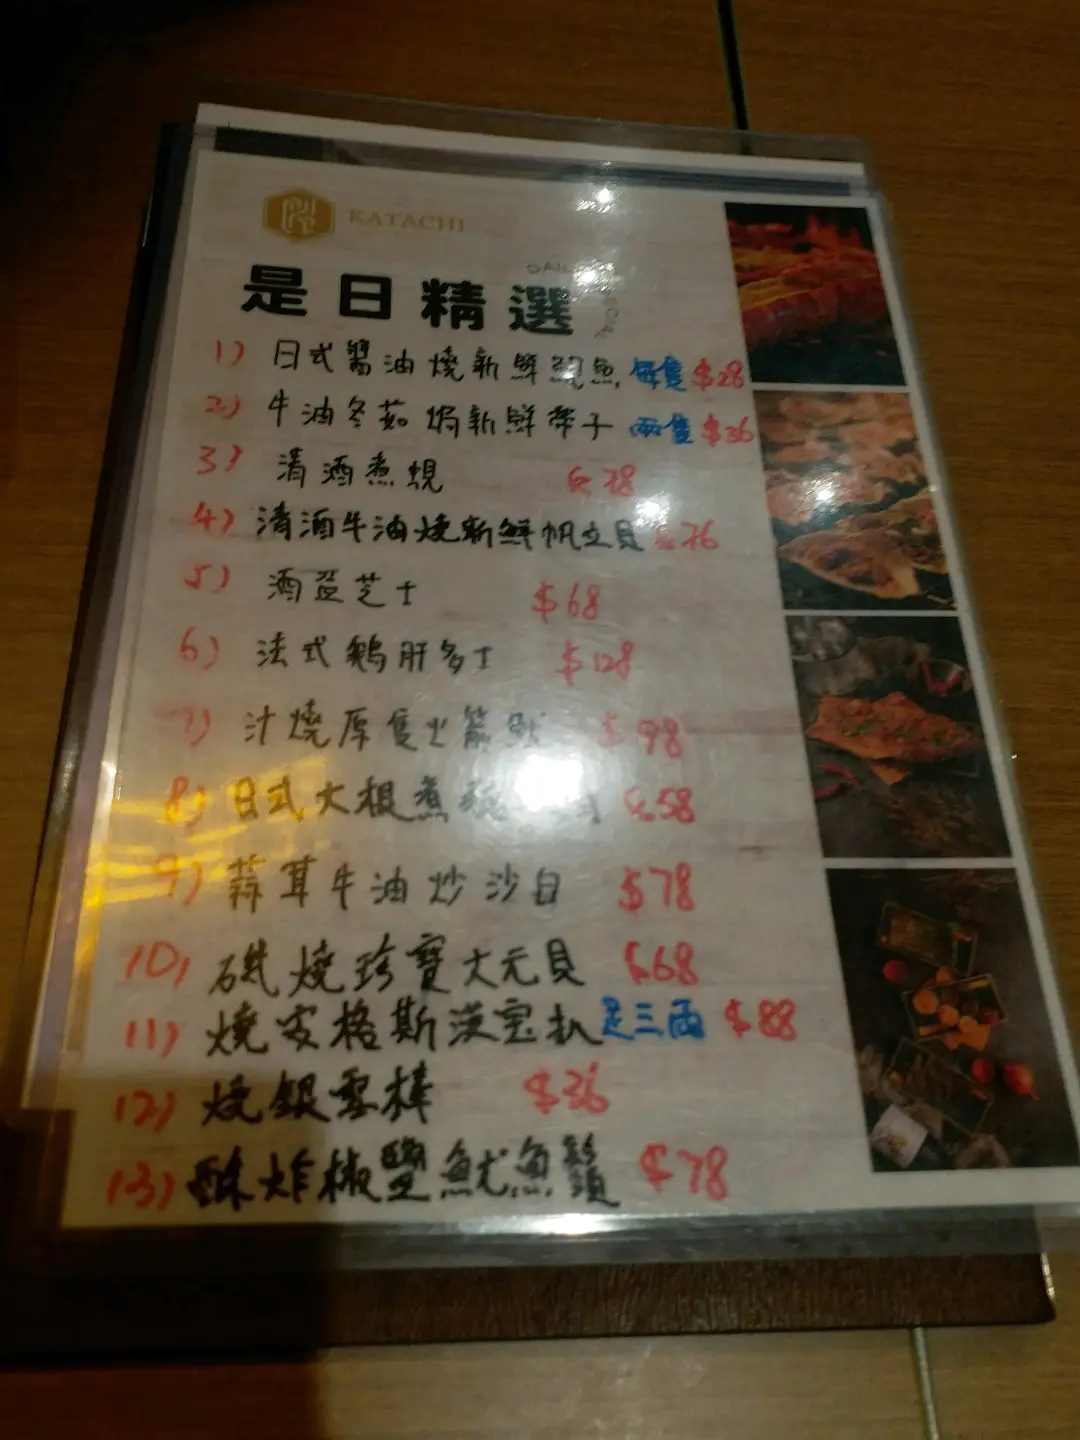 KATACHI
是日精選
1) 日式醬油燒新鮮鮑魚 每隻 $28
2) 牛油冬菇焗新鮮帶子 兩隻 $36
3) 清酒煮蜆 $78
4) 清酒牛油燒新鮮帆立貝 $76
5) 酒盜芝士 $68
6) 法式鵝肝多士 $128
7) 汁燒原隻火箭魷 $98
8) 日式大根煮 $58
9) 蒜茸牛油炒沙白 $78
10) 磯燒珍寶大元貝 $68
11) 燒安格斯漢宝扒 足三両 $88
12) 燒銀雪棒 $36
13) 酥炸椒鹽魷魚鬚 $78